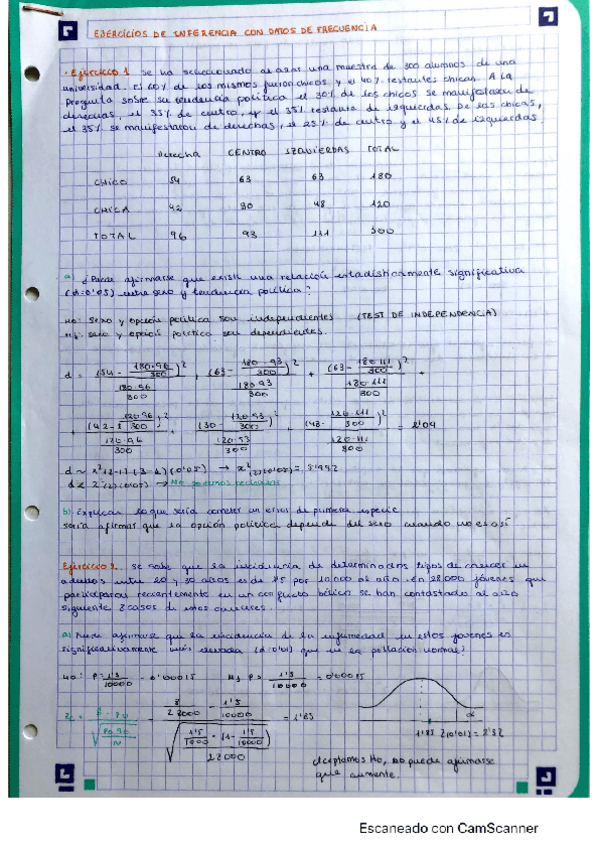 EJERCICIOS DE INFERENCIA CON DATOS DE FRECUENCIA
· Ejercicio 1 Se ha seleccionado al azar una muestra de 300 alumnos de una
universidad. El 60% de los mismos fueron chicos y el 40% restantes chicas. A la
pregunta sobre su tendencia política el 30% de los chicos se manifestaron de
derechas, el 35% de centro, y el 35% restante de izquierdas. De las chicas,
el 35% se manifestaron de derechas, el 25% de centro y el 45% de izquierdas
Derecha CENTRO IZQUIERDAS TOTAL
CHICO 54 63 63 180
CHICA 42 30 48 120
TOTAL 96 93 111 300
a) ¿Puede afirmarse que existe una relación estadísticamente significativa
(α=0'05) entre sexo y tendencia política?
H0: Sexo y opción política son independientes (TEST DE INDEPENDENCIA)
H1: sexo y opción política son dependientes.
d = (54 - 180·96/300)² / (180·96/300) + (63 - 180·93/300)² / (180·93/300) + (63 - 180·111/300)² / (180·111/300) +
+ (42 - 120·96/300)² / (120·96/300) + (30 - 120·93/300)² / (120·93/300) + (48 - 120·111/300)² / (120·111/300) = 2'04
d ~ x²(2-1)(3-1)(0'05) → x²(2)(0'05) = 5'992
b) Explicar lo que sería cometer un error de primera especie
Sería afirmar que la opción política depende del sexo cuando no es así
Ejercicio 2. Se sabe que la incidencia de determinados tipos de cáncer en
adultos entre 20 y 30 años es de 1'5 por 10.000 al año. En 28.000 jóvenes que
participaron recientemente en un conflicto bélico se han contrastado al año
siguiente 8 casos de estos cánceres.
a) Puede afirmarse que la incidencia de la enfermedad en estos jóvenes es
significativamente más elevada (α=0'01) que en la población normal?
H0: P = 1'5/10000 = 0'00015 H1 P > 1'5/10000 = 0'00015
= 1'83
1'83 Z(0'01) = 2'32
Aceptamos H0, no puede afirmarse
que aumente.
Escaneado con CamScanner